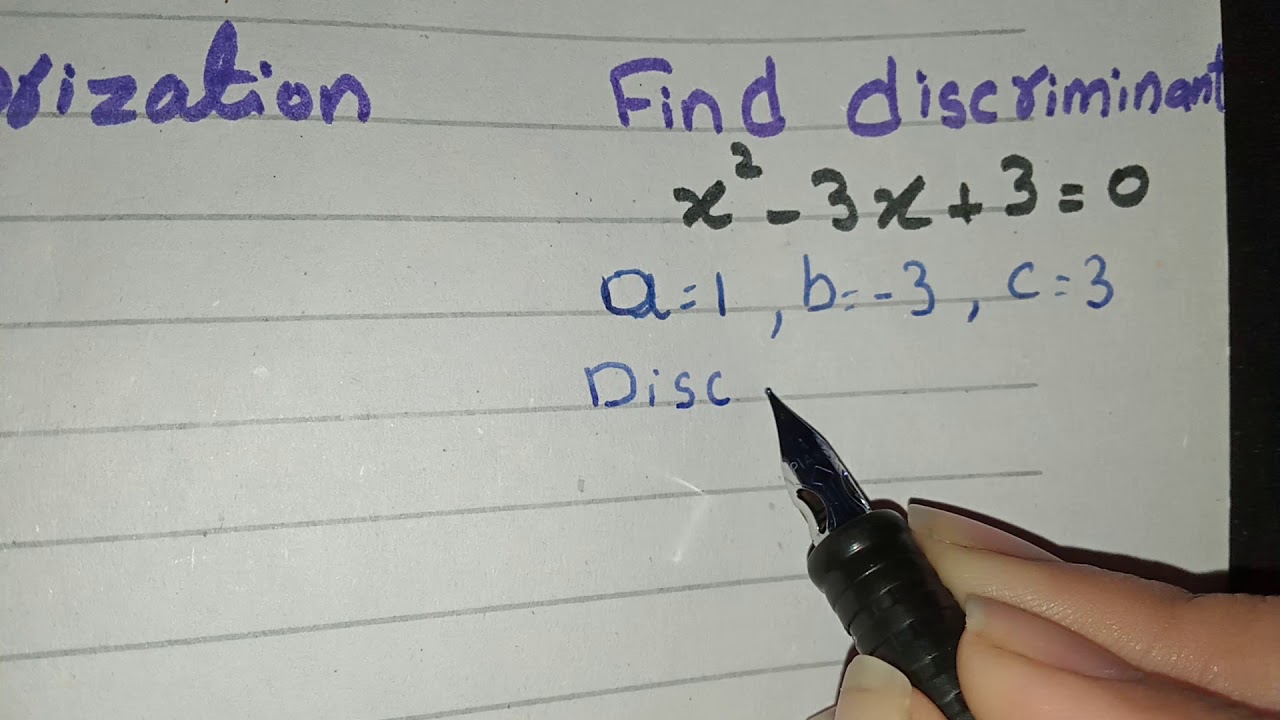 Find discriminant
x² - 3x + 3 = 0
a = 1 , b = -3 , c = 3
Disc